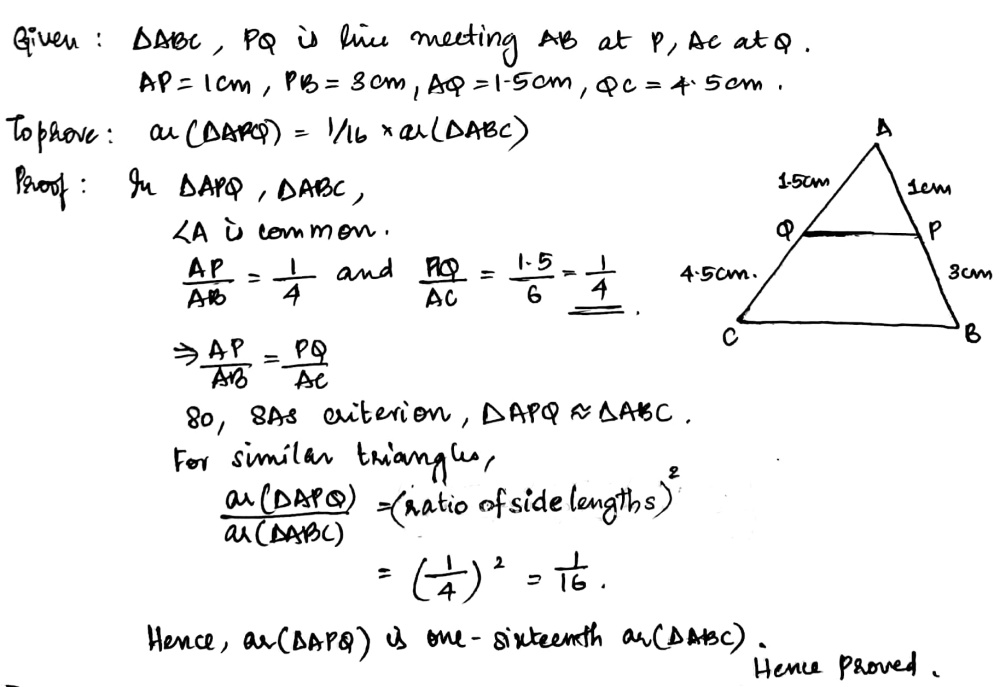 Given : ΔABC, PQ is line meeting AB at P, AC at Q.
AP = 1cm, PB = 3cm, AQ = 1.5cm, QC = 4.5cm.
To prove : ar(ΔAPQ) = 1/16 × ar(ΔABC)
Proof : In ΔAPQ, ΔABC,
∠A is common.
AP/AB = 1/4 and AQ/AC = 1.5/6 = 1/4.
⇒ AP/AB = PQ/AC
So, SAS criterion, ΔAPQ ≈ ΔABC.
For similar triangles,
ar(ΔAPQ)/ar(ΔABC) = (ratio of side lengths)²
= (1/4)² = 1/16.
Hence, ar(ΔAPQ) is one-sixteenth ar(ΔABC).
Hence Proved.
A
1.5cm
1cm
Q
P
4.5cm.
3cm
C
B